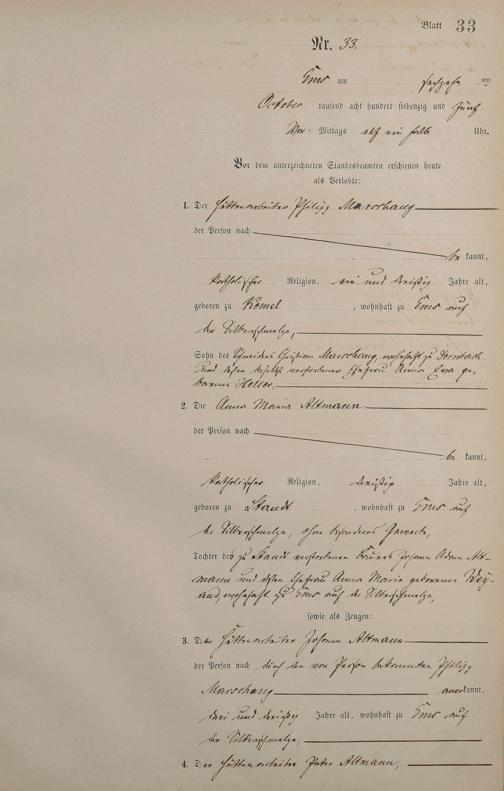 Blatt 33
Nr. 33.
Ems am sechzehn ten
October tausend acht hundert siebenzig und fünf
Vor- Mittags elf ein halb Uhr.
Vor dem unterzeichneten Standesbeamten erschienen heute
als Verlobte:
1. Der Hüttenarbeiter Philipp Marschang
der Person nach
be kannt,
katholischer Religion, ein und dreißig Jahre alt,
geboren zu Kemel, wohnhaft zu Ems auf
der Silberschmelze,
Sohn des Schneiders Christian Marschang, wohnhaft zu Dernbach
und dessen verstorbener Ehefrau Anna Eva ge-
borene Heller,
2. Die Anna Maria Altmann
der Person nach
be kannt,
katholischer Religion, dreißig Jahre alt,
geboren zu Staudt, wohnhaft zu Ems auf
der Silberschmelze, ohne besonderes Gewerbe,
Tochter des zu Staudt verstorbenen Johann Adam Alt-
mann und dessen Ehefrau Anna Maria geborenen Wey-
and, wohnhaft zu Ems auf der Silberschmelze,
sowie als Zeugen:
3. Der Hüttenarbeiter Johann Altmann
der Person nach durch den von Person bekannten Philipp
Marschang anerkannt,
drei und dreißig Jahre alt, wohnhaft zu Ems auf
der Silberschmelze,
4. Der Hüttenarbeiter Peter Altmann,